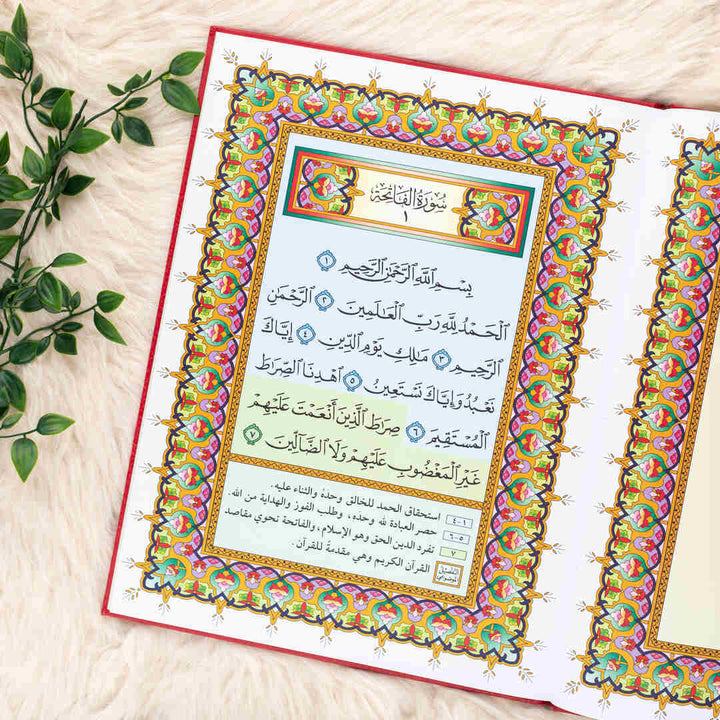 سُورَةُ الفَاتِحَةِ
١
بِسْمِ ٱللَّهِ ٱلرَّحْمَٰنِ ٱلرَّحِيمِ ١
ٱلْحَمْدُ لِلَّهِ رَبِّ ٱلْعَٰلَمِينَ ٢ ٱلرَّحْمَٰنِ
ٱلرَّحِيمِ ٣ مَٰلِكِ يَوْمِ ٱلدِّينِ ٤ إِيَّاكَ
نَعْبُدُ وَإِيَّاكَ نَسْتَعِينُ ٥ ٱهْدِنَا ٱلصِّرَٰطَ
ٱلْمُسْتَقِيمَ ٦ صِرَٰطَ ٱلَّذِينَ أَنْعَمْتَ عَلَيْهِمْ
غَيْرِ ٱلْمَغْضُوبِ عَلَيْهِمْ وَلَا ٱلضَّآلِّينَ ٧
١-٤ استحقاق الحمد للخالق وحده والثناء عليه.
٥-٦ حصر العبادة لله وحده، وطلب الفوز والهداية من الله.
٧ تفرد الدين الحق وهو الإسلام، والفاتحة تحوي مقاصد
القرآن الكريم وهي مقدمة للقرآن.
التفصيل
الموضوعي